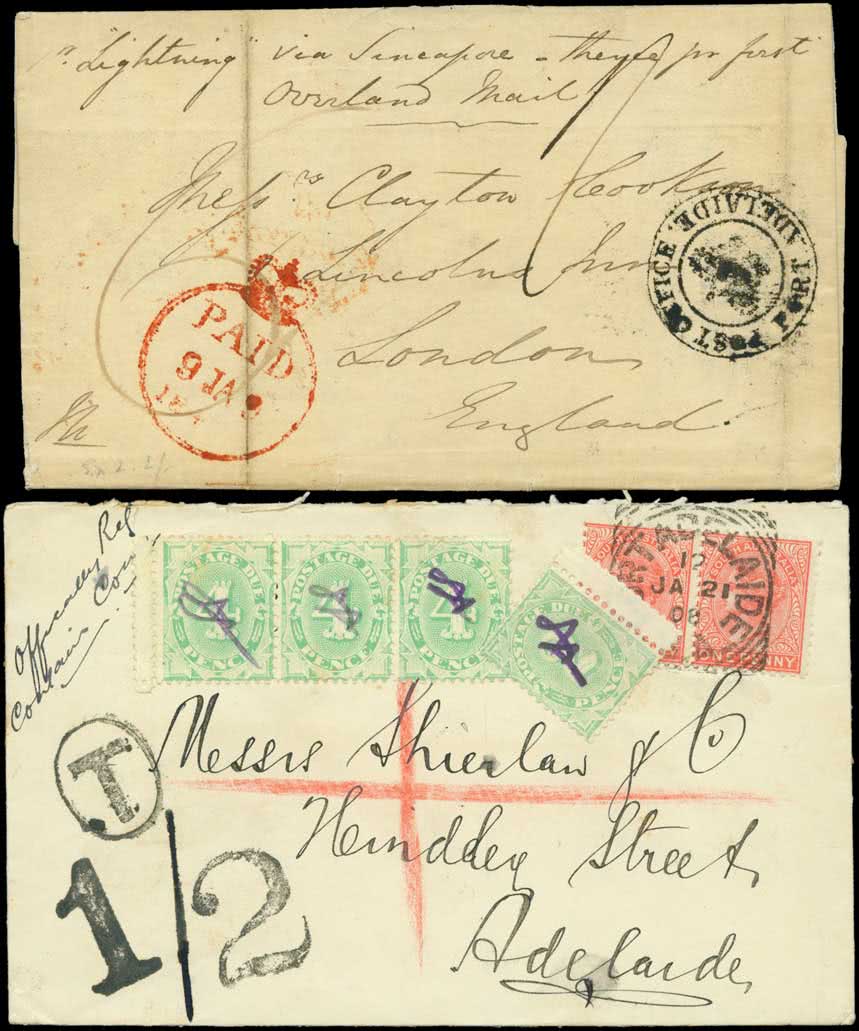 pr "Lightning" via Sincapore - thence pr first
Overland Mail
Messrs Clayton Cookson
Lincolns Inn
London
England.
PAID
9 JA 9
POST OFFICE PORT ADELAIDE
Officially Reg
Contains Coin
POSTAGE DUE
4
PENCE
POSTAGE DUE
4
PENCE
POSTAGE DUE
4
PENCE
POSTAGE DUE
PENCE
ONE PENNY
PORT ADELAIDE
12
JA 21
08
Messrs Shierlaw & Co
Hindley Street,
Adelaide,
T
1/2